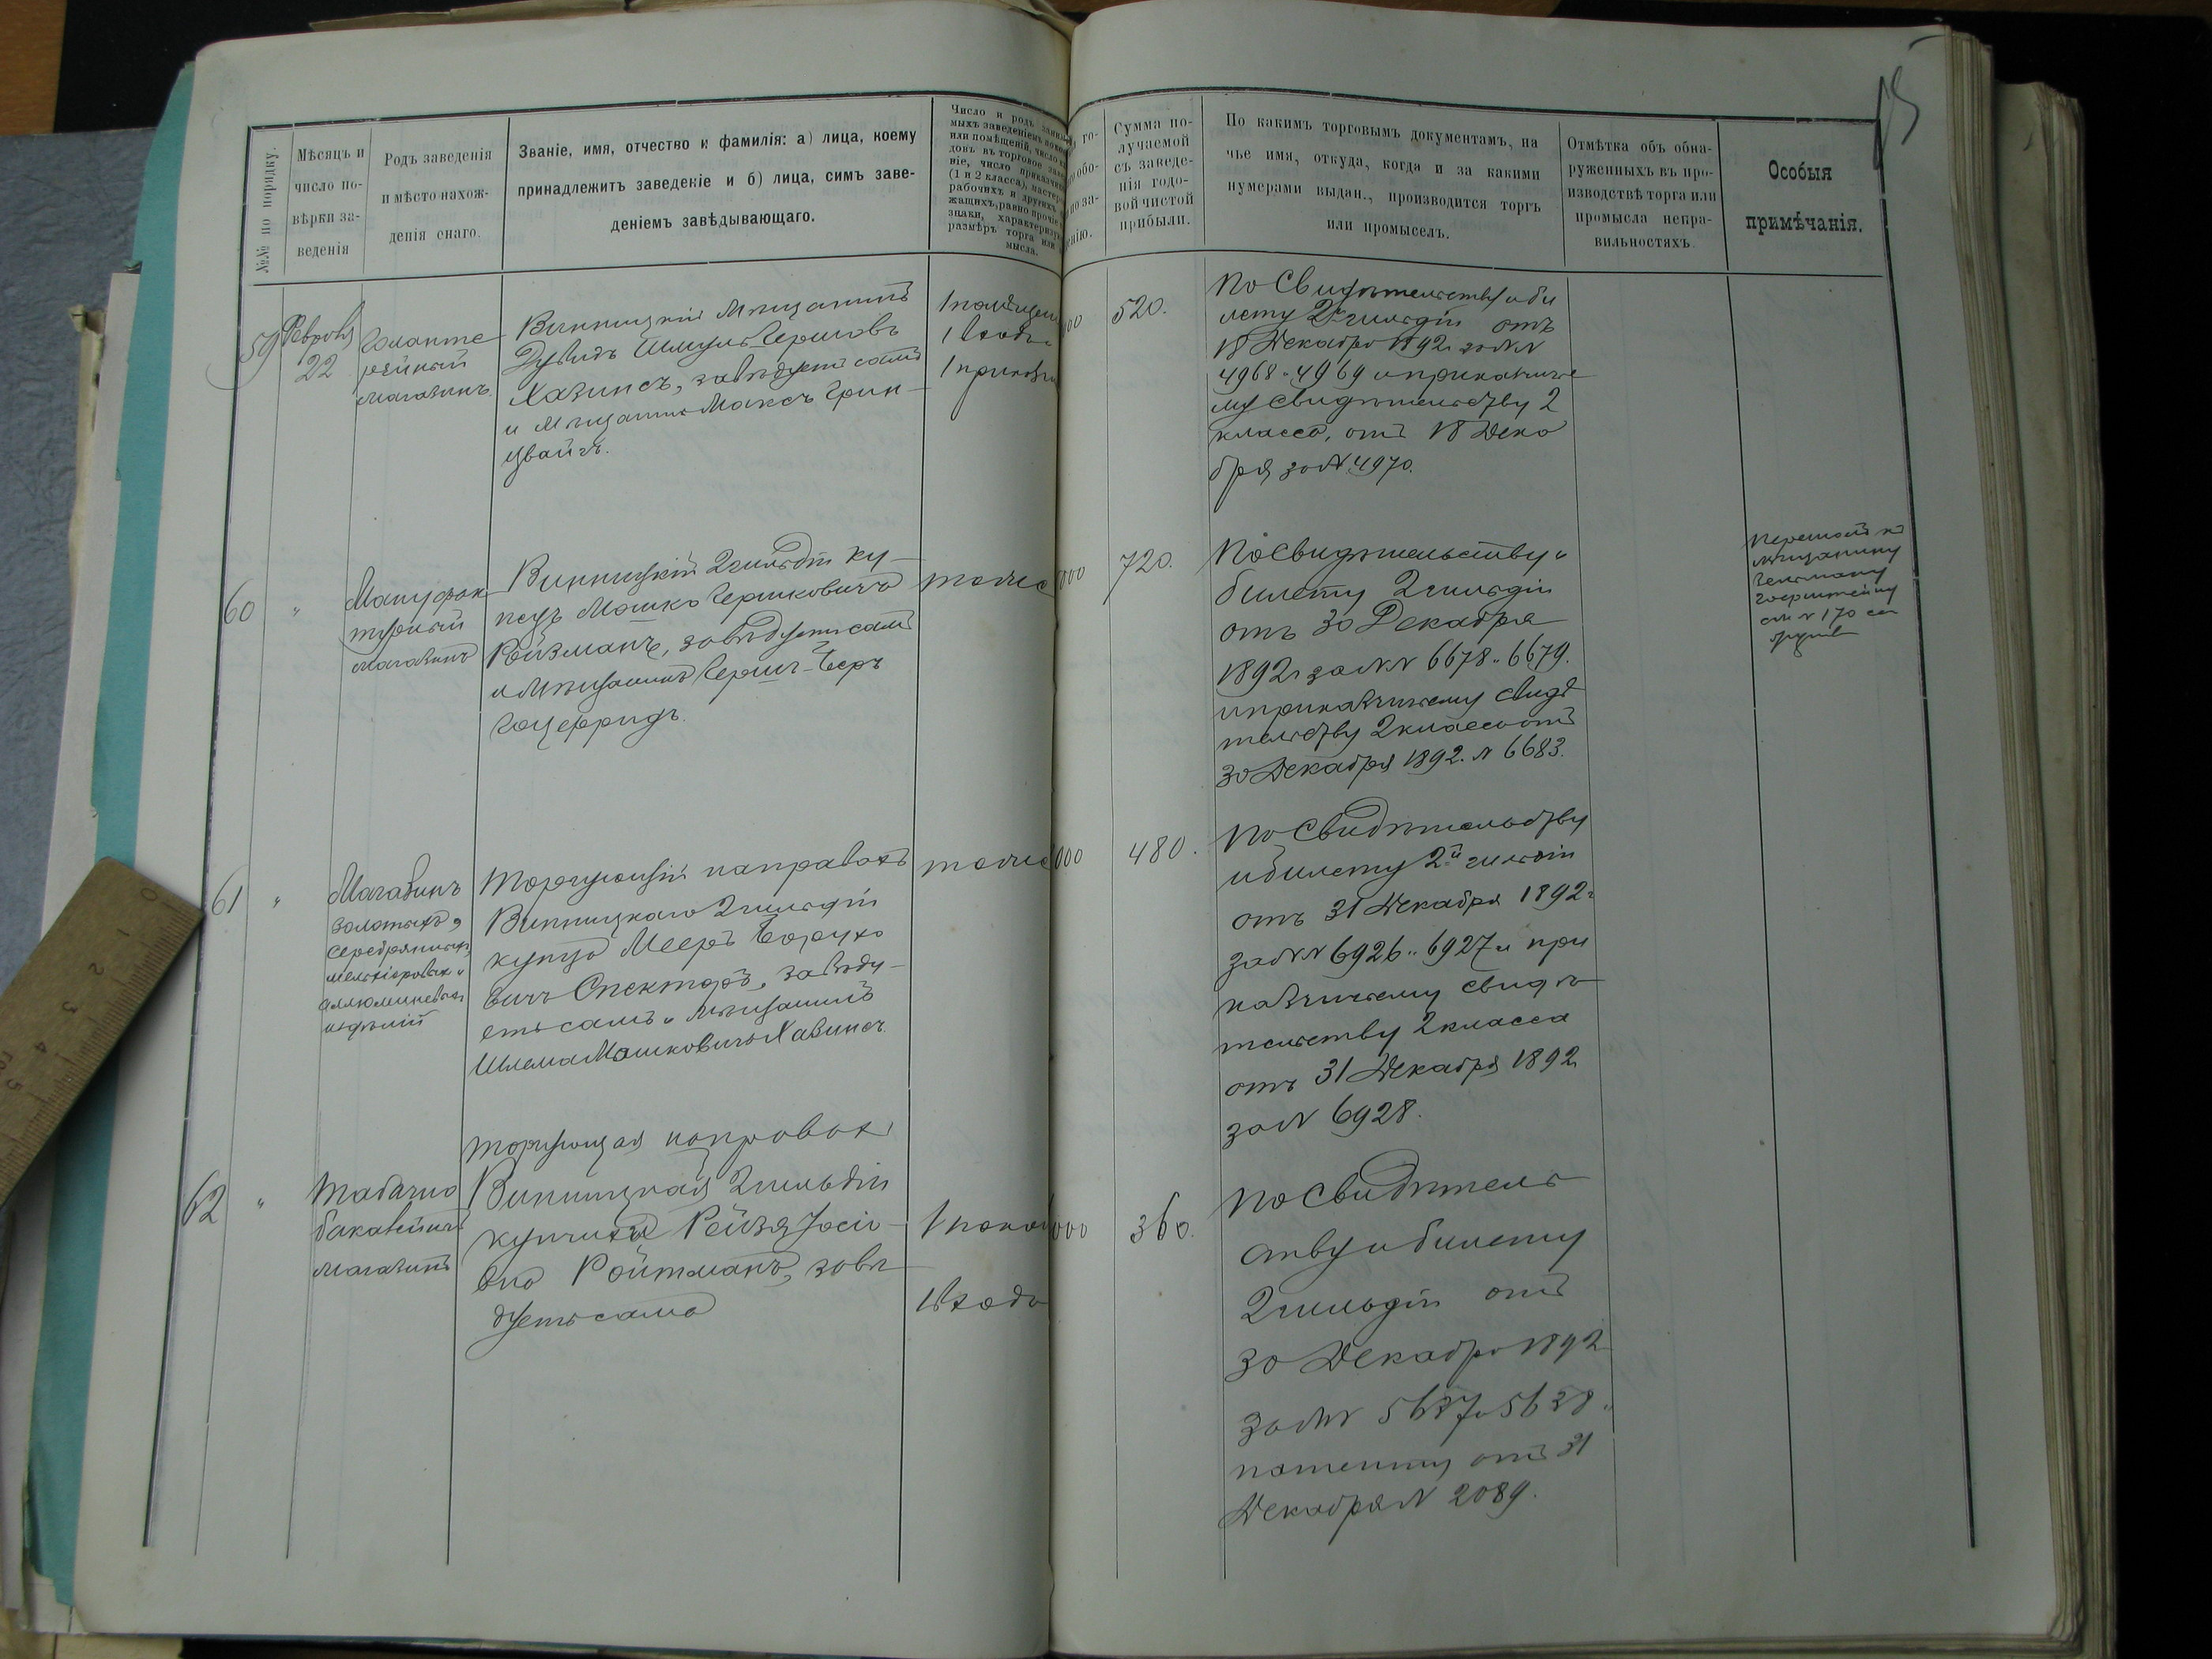 №№ по порядку.
Мѣсяцъ и
число по-
вѣрки за-
веденія
Родъ заведенія
и мѣсто нахож-
денія онаго.
Званіе, имя, отчество и фамилія: а) лица, коему
принадлежитъ заведеніе и б) лица, симъ заве-
деніемъ завѣдывающаго.
Число и родъ
мыхъ заведеніемъ
или помѣщеній, число
довъ въ торговое
ніе, число
(1 и 2 класса),
рабочихъ и другихъ
жащихъ, равно прочіе
знаки,
размѣръ торга или
мысла.
Сумма по-
лучаемой
съ заведе-
нія годо-
вой чистой
прибыли.
По какимъ торговымъ документамъ, на
чье имя, откуда, когда и за какими
нумерами выдан., производится торгъ
или промыселъ.
Отмѣтка объ обна-
руженныхъ въ про-
изводствѣ торга или
промысла непра-
вильностяхъ
Особыя
примѣчанія.
59
22
Галанте-
рейный
магазинъ.
Винницкій Мѣщанинъ
Дувидъ Шмуль Гершовъ
Хазинсъ, завѣдуетъ самъ
и Мѣщанинъ Максъ Грин-
цвайгъ.
1 входъ
000
520.
По Свидѣтельству и би
лету 2 гильдіи отъ
18 Декабря 1892 г за №№
4968 и 4969 и приказчичье
му свидѣтельству 2
класса, отъ 18 Дека
бря за № 4970.
60
"
Мануфак-
турный
магазинъ
Винницкій 2 гильдіи Ку-
пецъ Мошко Гершковичъ
Ройзманъ, завѣдуетъ самъ
и Мѣщанинъ Гершъ-Беръ
Гоцефридъ.
тоже
000
720.
По Свидѣтельству и
билету 2 гильдіи
отъ 30 Декабря
1892 г за №№ 6678 и 6679.
и приказчичьему свидѣ
тельству 2 класса отъ
30 Декабря 1892. № 6683.
Перешолъ къ
мѣщанину
см № 170
61
"
Магазинъ
золотыхъ,
серебряныхъ,
мельхіоровыхъ и
аллюминевыхъ
издѣлій
Торгующій на правахъ
Винницкаго 2 гильдіи
купца Мееръ Борухо
вичъ Спекторъ, завѣду-
етъ самъ и Мѣщанинъ
Шлема Мошковичъ Хавинсъ.
тоже
000
480.
По Свидѣтельству
и билету 2й гильдіи
отъ 31 Декабря 1892 г
за №№ 6926 и 6927 и при
казчичьему свидѣ
тельству 2 класса
отъ 31 Декабря 1892
за № 6928.
62
"
Табачно
бакалейный
магазинъ
Торгующая на правахъ
Винницкая 2 гильдіи
купчиха Рейзя Іосіо-
вна Ройтманъ, завѣ
дуетъ сама
1 входъ
000
360.
По Свидѣтель
ству и билету
2 гильдіи отъ
30 Декабря 1892
за №№ 5637 и 5638 и
патенту отъ 31
Декабря № 2089.